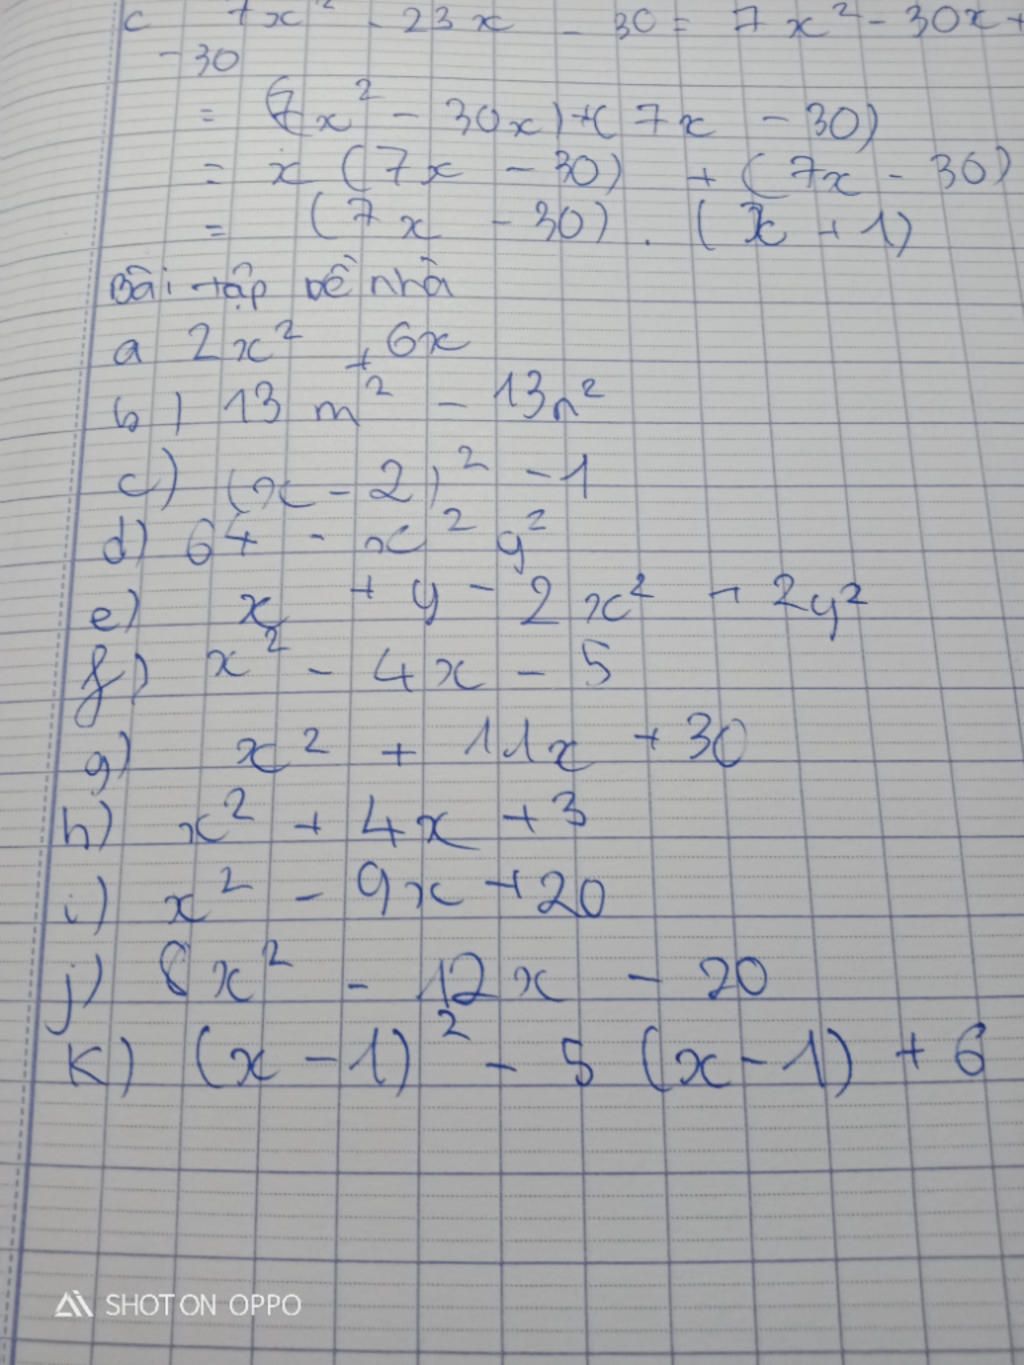 c 7x² - 23x - 30 = 7x² - 30x +
- 30
= (7x² - 30x) + (7x - 30)
= x (7x - 30) + (7x - 30)
= (7x - 30) . (x + 1)
Bài tập về nhà
a 2x² + 6x
b) 13m² - 13n²
c) (x - 2)² - 1
d) 64 - x² y²
e) x + y - 2x² - 2y²
f) x² - 4x - 5
g) x² + 11x + 30
h) x² + 4x + 3
i) x² - 9x + 20
j) 8x² - 12x - 20
K) (x - 1)² - 5 (x - 1) + 6
SHOT ON OPPO